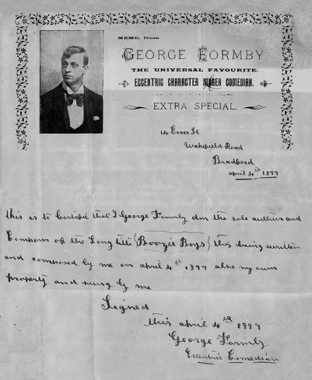 MEMO. from
GEORGE FORMBY
THE UNIVERSAL FAVOURITE.
ECCENTRIC CHARACTER SINGER COMEDIAN.
EXTRA SPECIAL.
14 St
Wakefield Road
Bradford
april 4th 1897
this is to Certified that I George Formby am the sole author and
Composer of the Song title (Boozie Boys) this being written
and composed by me on april 4th 1897 also my own
property and sung by me
Signed
this april 4th 1897
George Formby
Eccentric Comedian